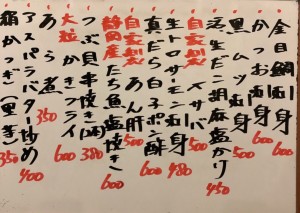 金目鯛刺 600
かつお刺身 500
黒ムツ刺身 600
活〆だこ胡麻塩かけ 450
自家製 〆サバ 480
生トロサーモン刺身 600
真だら白子ポン酢 550
自家製 あん肝 500
静岡産 たち魚塩焼き 600
つぶ貝串焼き 380
大粒 かきフライ 600
あら煮 350
アスパラバター炒め 400
稲かっぎ(里芋) 350